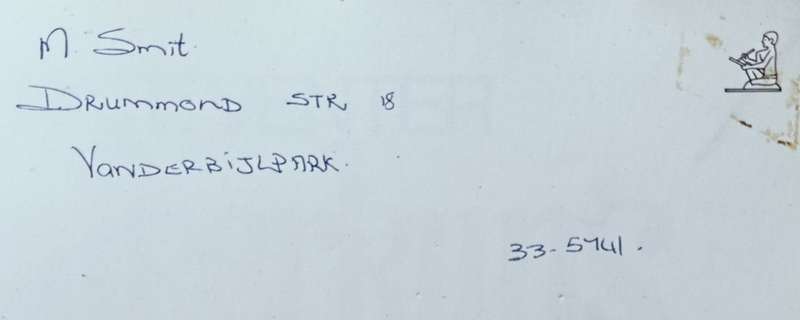 M. Smit.
DRUMMOND STR 18
VANDERBIJLPARK.
33-5741.